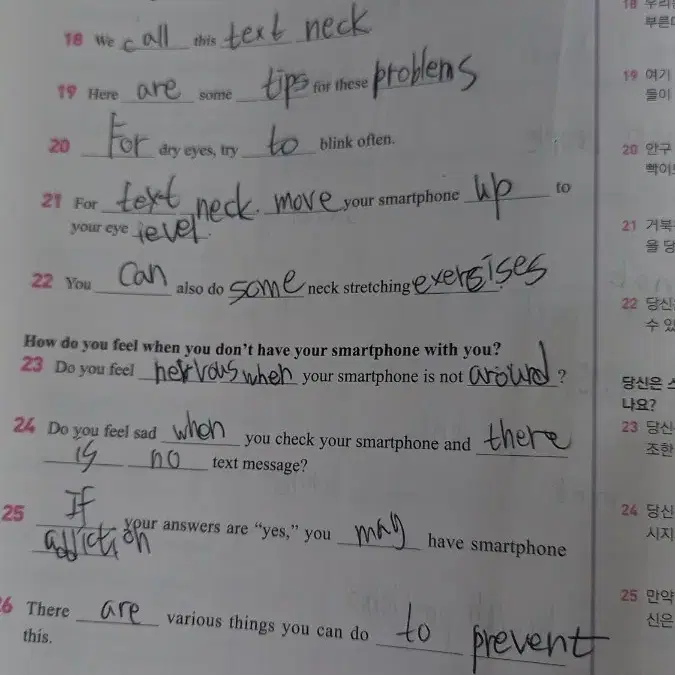 18 We call this text neck
19 Here are some tips for these problems
20 For dry eyes, try to blink often.
21 For text neck. move your smartphone up to
your eye level.
22 You can also do some neck stretching exersises
How do you feel when you don't have your smartphone with you?
23 Do you feel nervous when your smartphone is not around?
24 Do you feel sad when you check your smartphone and there
is no text message?
25 If your answers are “yes,” you may have smartphone
addiction
6 There are various things you can do to prevent
this.
18 우리는
부른다
19 여기
들이
20 안구
빡이
21 거북
을 당
22 당신
수 있
당신은 스
나요?
23 당신
조한
24 당신
시지
25 만약
신은